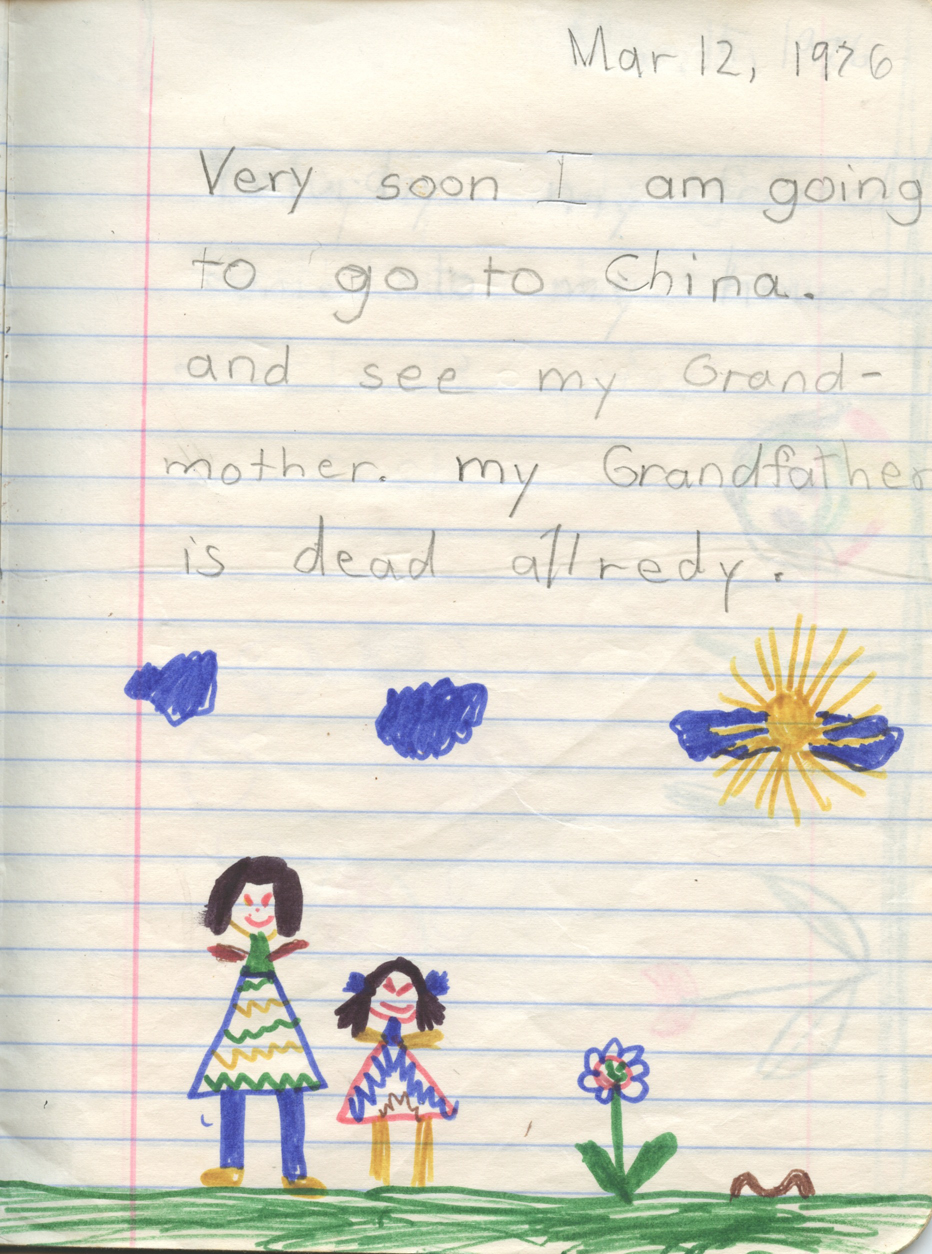 Mar 12, 1976
Very soon I am going
to go to China.
and see my Grand-
mother. my Grandfather
is dead allredy.